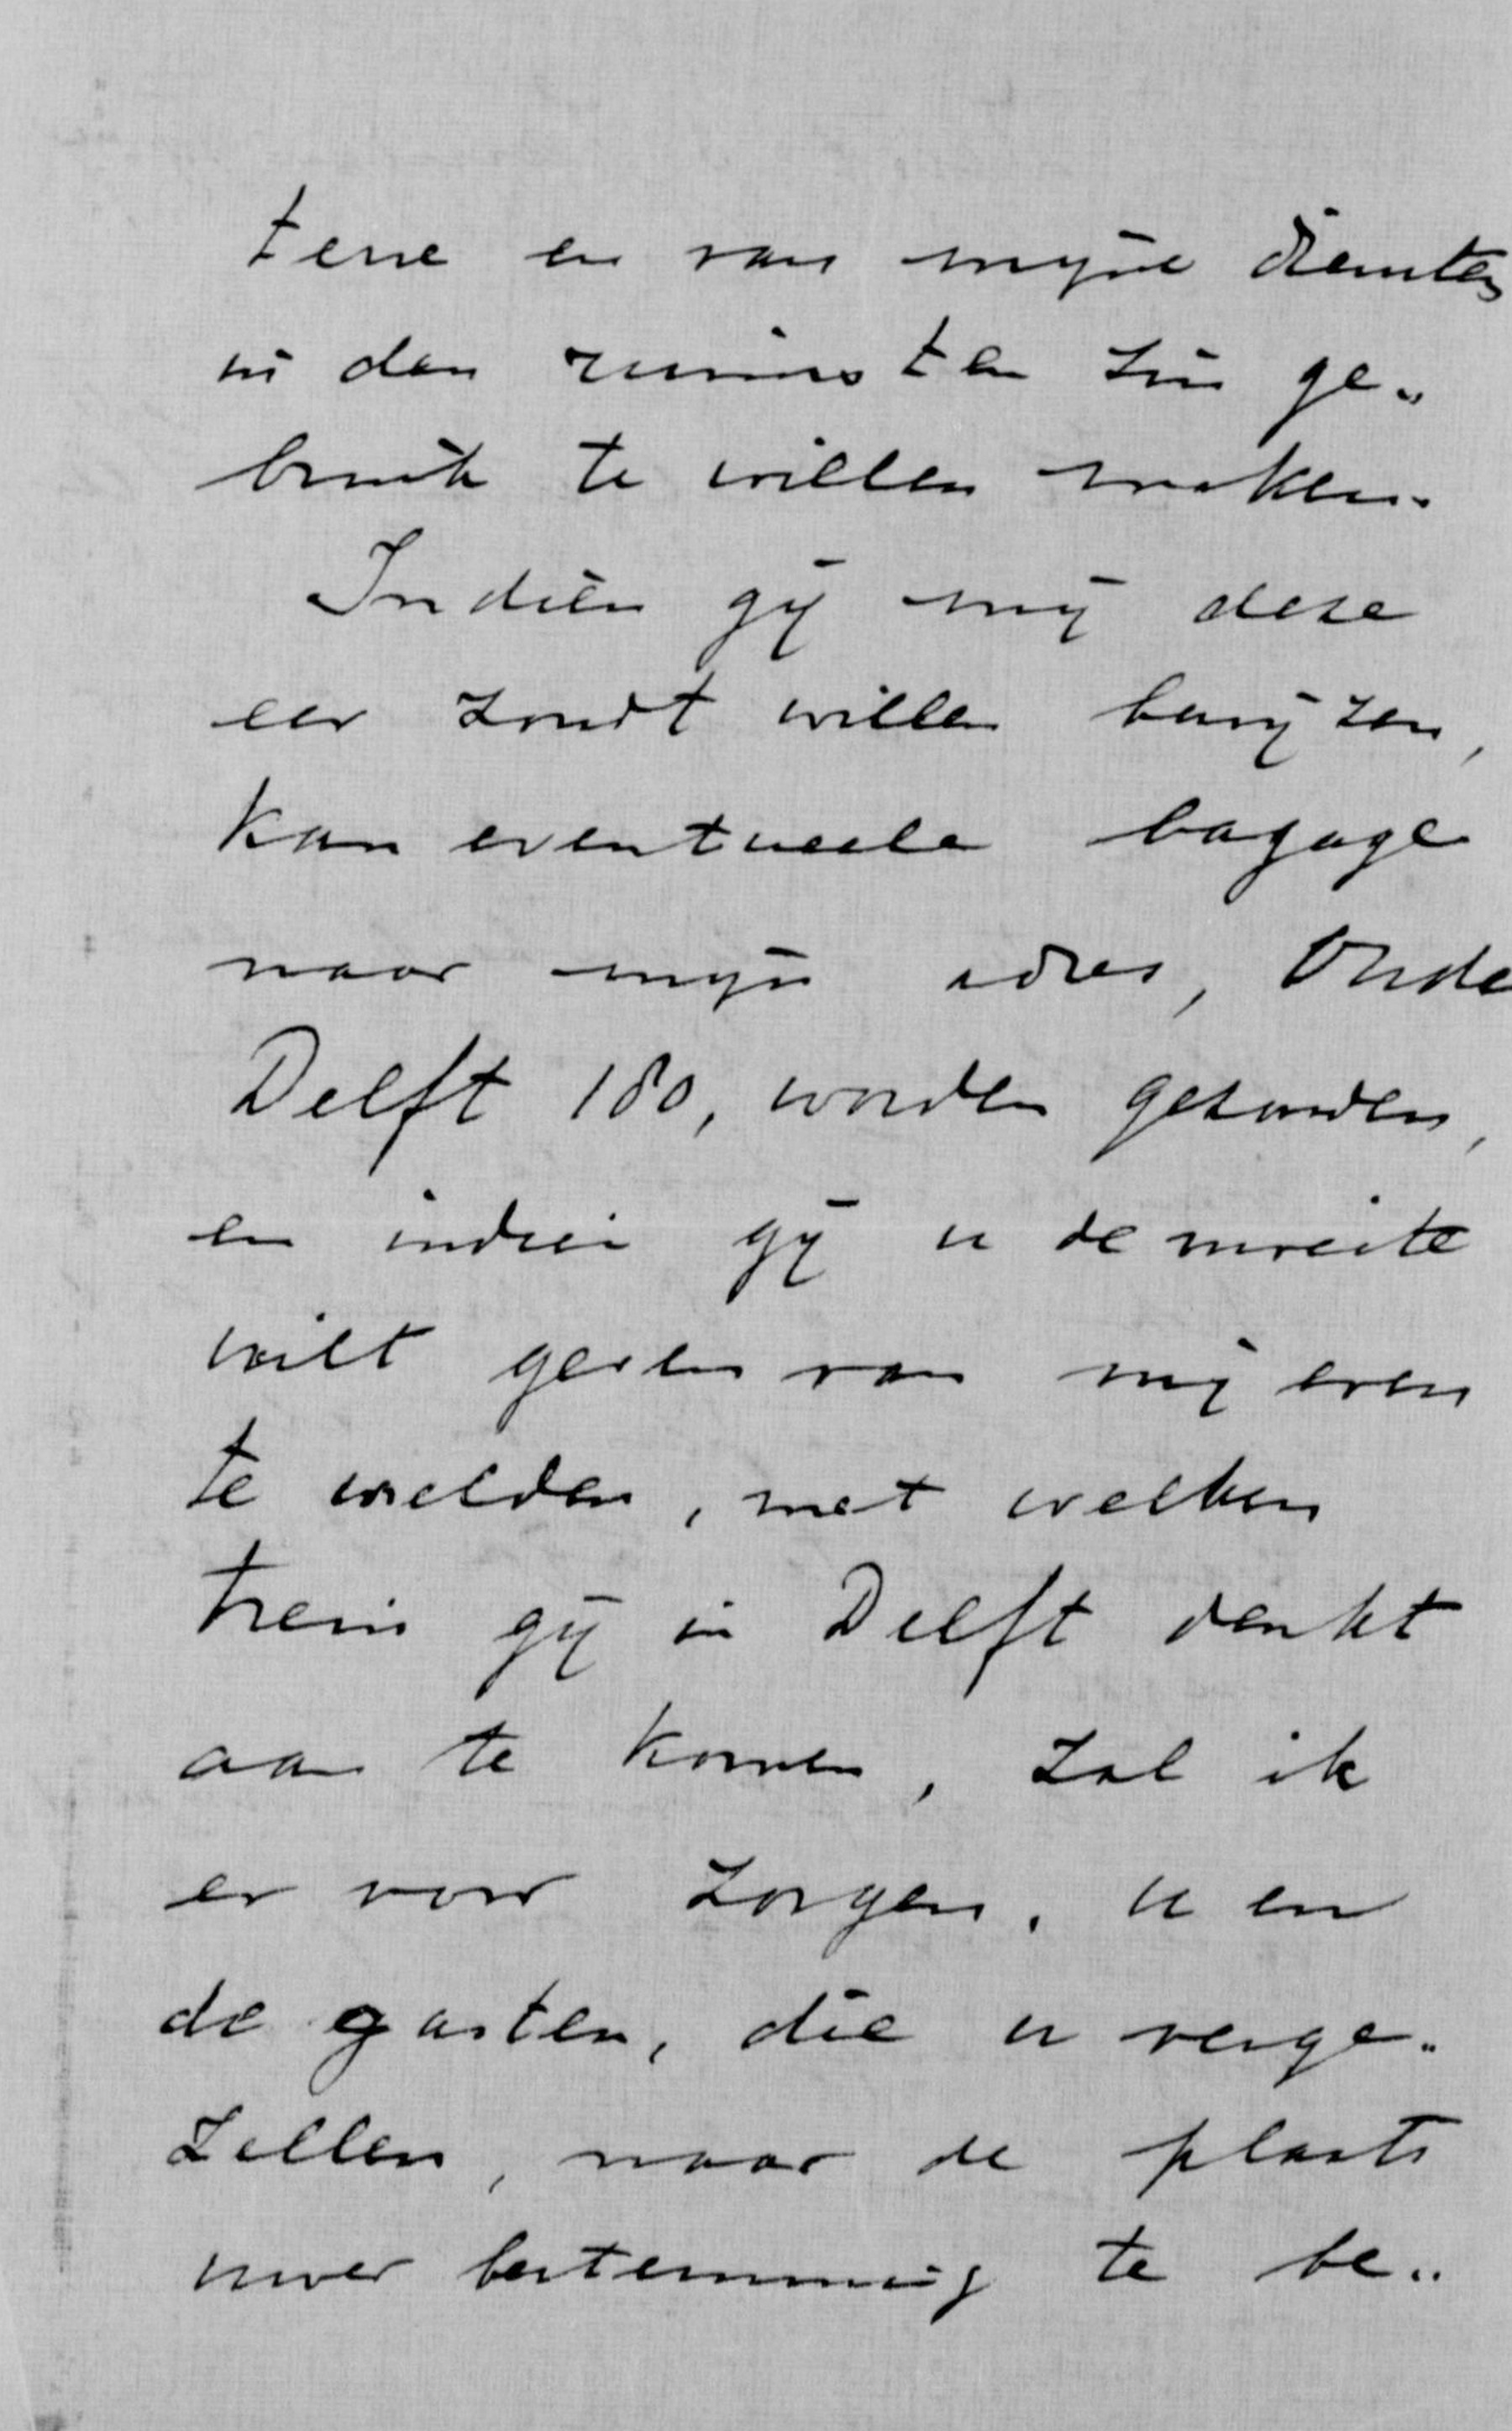 tene en van mijne diensten
in den ruimsten zin ge-
bruik te willen maken.
Indien gij mij deze
eer zoudt willen bewijzen,
kan eventueele bagage
naar mijn adres, Oude
Delft 180, worden gezonden,
en indien gij u de moeite
wilt geven van mij even
te melden, met welken
trein gij in Delft denkt
aan te komen, zal ik
er voor zorgen, u en
de gasten, die u verge-
zellen, naar de plaats
uwer bestemming te be-